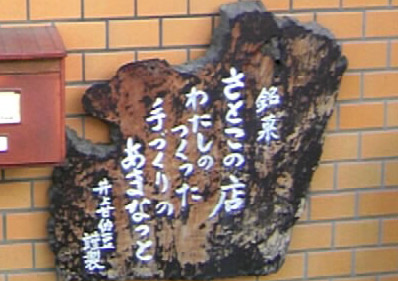 銘菓
さとこの店
わたしの
つくった
手づくりの
あさなっと
井上甘伯豆
謹製